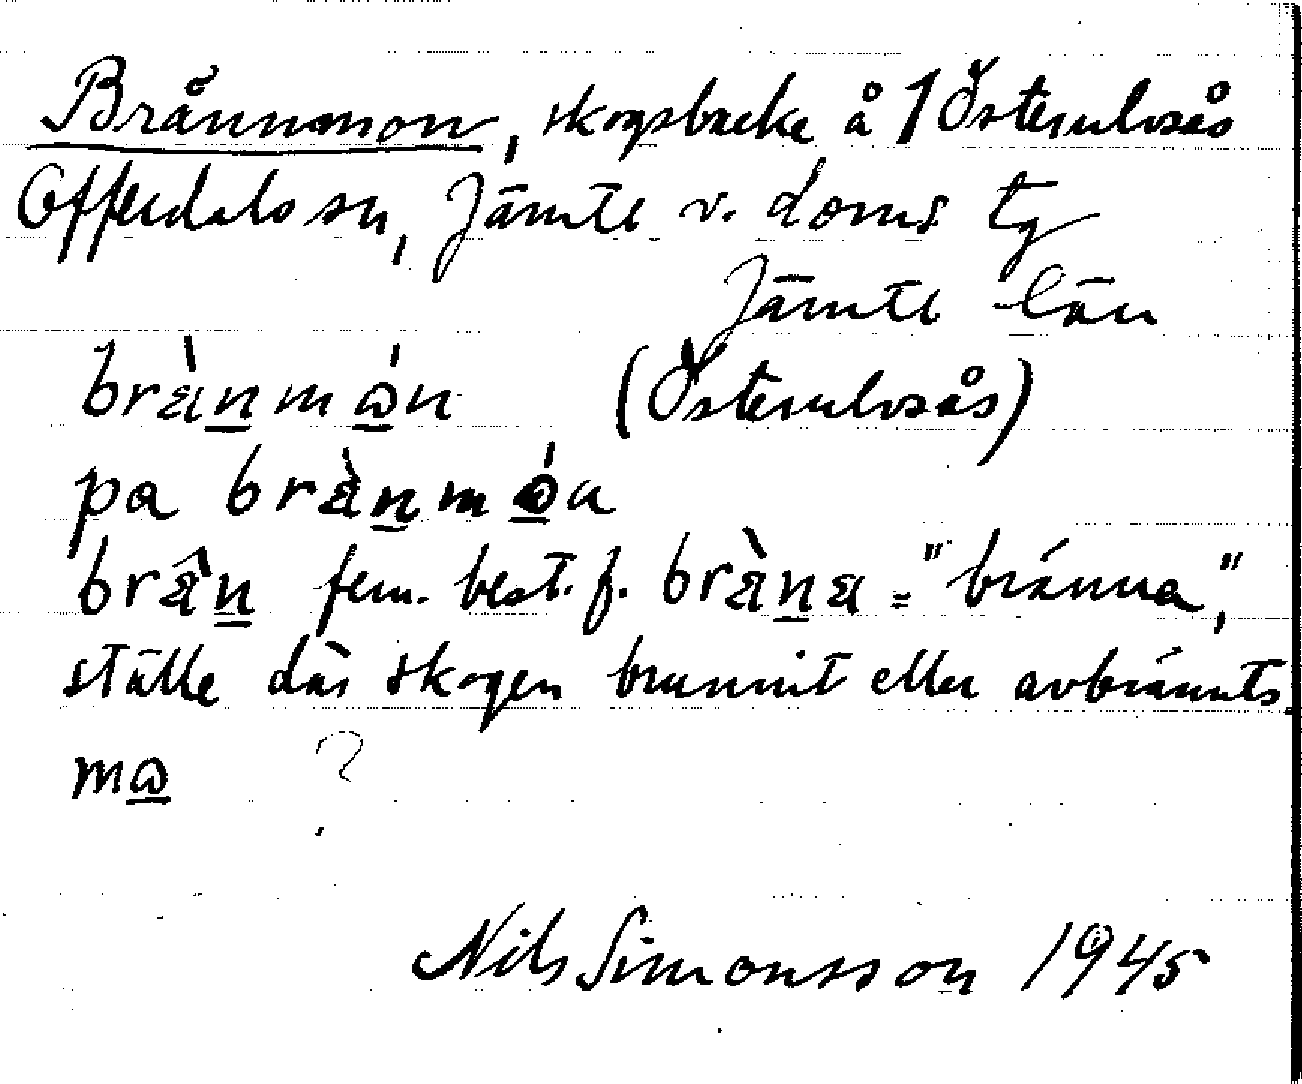 Brånnmon, skogsbacke å 1 Östervlvsås
Offerdals sn, Jämtl v. doms tg
Jämtl län
brànmón (Östervlvsås)
pa brànmóa
brân fem. best. f. bràna = "bränna",
ställe där skogen brunnit eller avbrännts.
mo ?
Nils Simonsson 1945